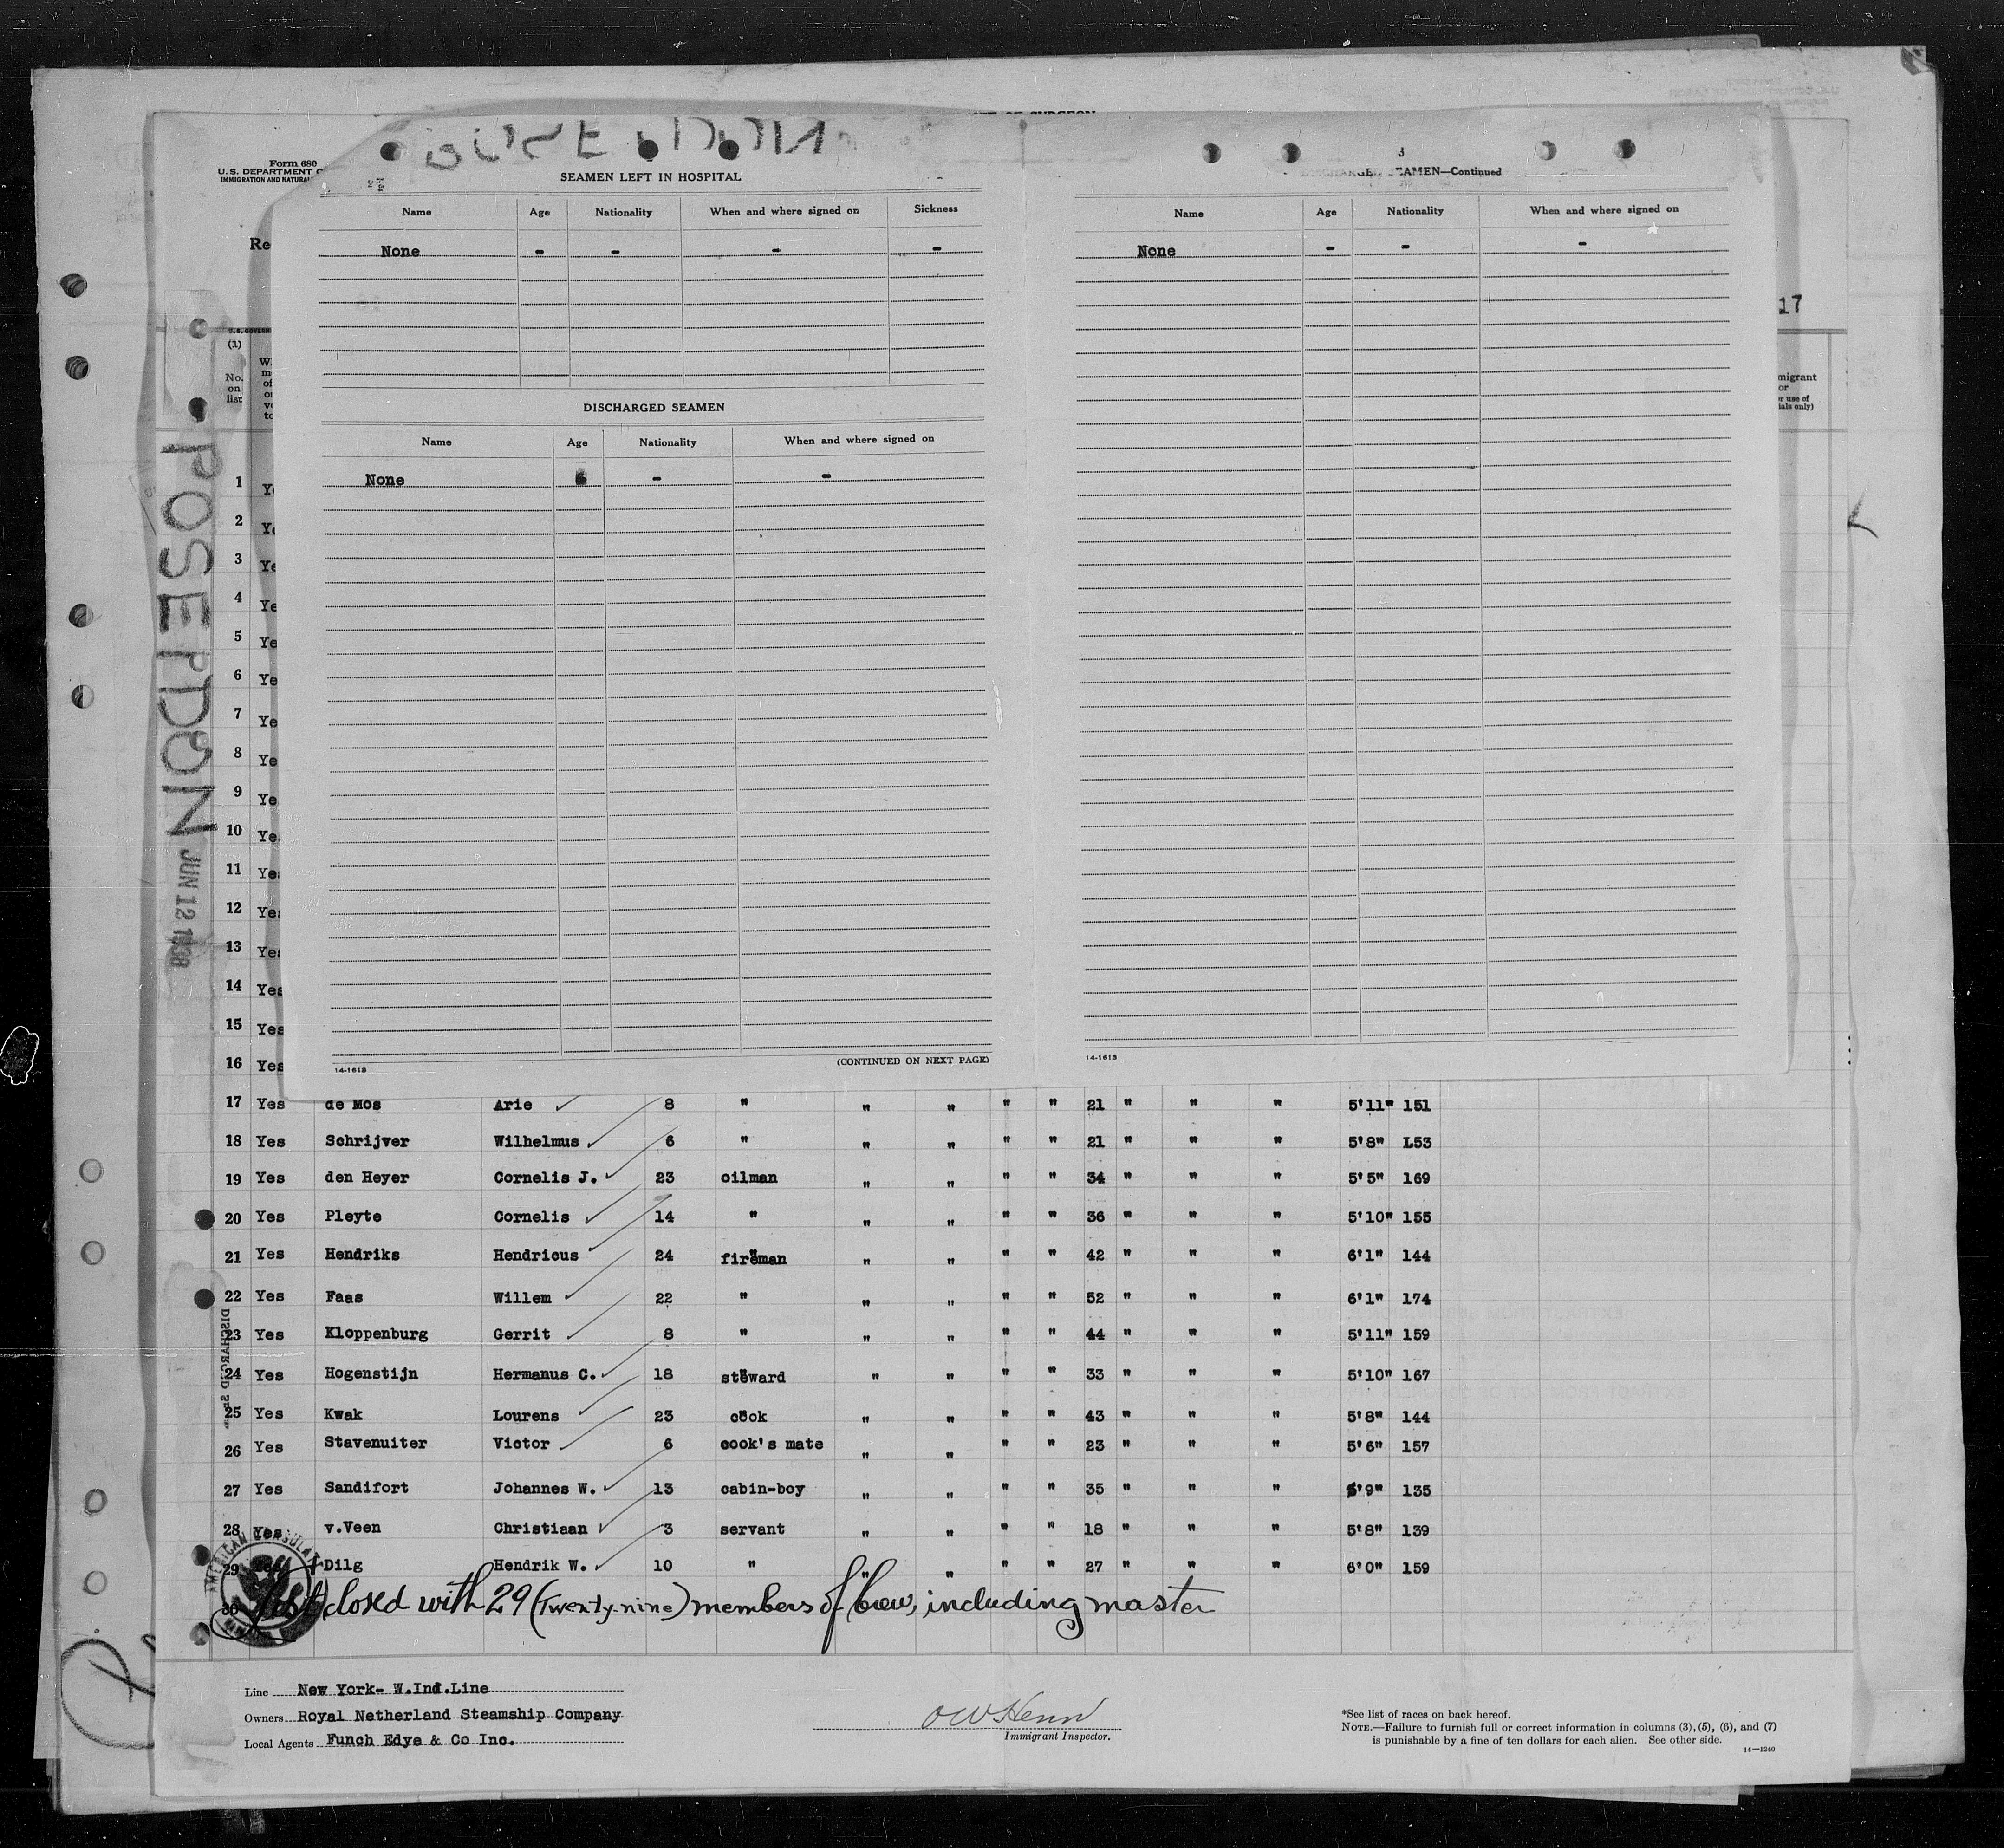 Form 680
U.S. DEPARTMENT
IMMIGRATION AND
SEAMEN LEFT IN HOSPITAL
Name Age Nationality When and where signed on Sickness
None - - - -
DISCHARGED SEAMEN
Name Age Nationality When and where signed on
None - -
(CONTINUED ON NEXT PAGE)
14-1613
3
DISCHARGED SEAMEN—Continued
Name Age Nationality When and where signed on
None - - -
14-1613
17
(1)
No. on list
POSEIDON JUN 12 1938
1
2
3
4
5
6
7
8
9
10
11
12
13
14
15 Yes
16 Yes
17 Yes de Mos Arie 8 " " " " " 21 " " " 5'11" 151
18 Yes Schrijver Wilhelmus 6 " " " " " 21 " " " 5'8" L53
19 Yes den Heyer Cornelis J. 23 oilman " " " " 34 " " " 5'5" 169
20 Yes Pleyte Cornelis 14 " " " " " 36 " " " 5'10" 155
21 Yes Hendriks Hendricus 24 fireman " " " " 42 " " " 6'1" 144
22 Yes Faas Willem 22 " " " " " 52 " " " 6'1" 174
23 Yes Kloppenburg Gerrit 8 " " " " " 44 " " " 5'11" 159
24 Yes Hogenstijn Hermanus C. 18 steward " " " " 33 " " " 5'10" 167
25 Yes Kwak Lourens 23 cook " " " " 43 " " " 5'8" 144
26 Yes Stavenuiter Victor 6 cook's mate " " " " 23 " " " 5'6" 157
27 Yes Sandifort Johannes W. 13 cabin-boy " " " " 35 " " " 9" 135
28 Yes v.Veen Christiaan 3 servant " " " " 18 " " " 5'8" 139
29 Dilg Hendrik W. 10 " " " " " 27 " " " 6'0" 159
List closed with 29 (Twenty-nine) members of crew, including master
Line New York- W.Ind.Line
Owners Royal Netherland Steamship Company
Local Agents Funch Edye & Co Inc.
Immigrant Inspector.
*See list of races on back hereof.
NOTE.—Failure to furnish full or correct information in columns (3), (5), (6), and (7)
is punishable by a fine of ten dollars for each alien. See other side.
14—1240